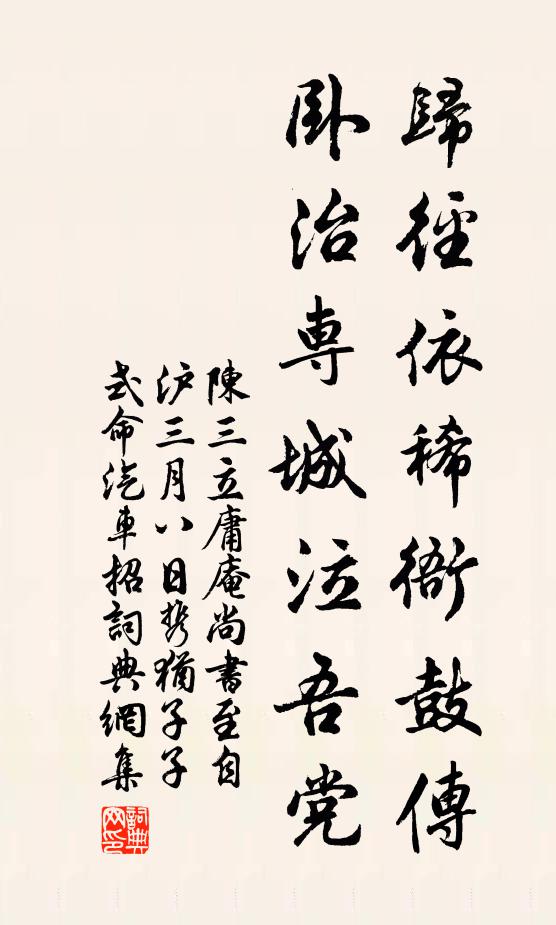 歸徑依稀衙鼓傳
卧治専城泣吾党
陳三立庸庵尚書至自
沪三月八日携猶子子
式命汽車招詞典網集
詞典